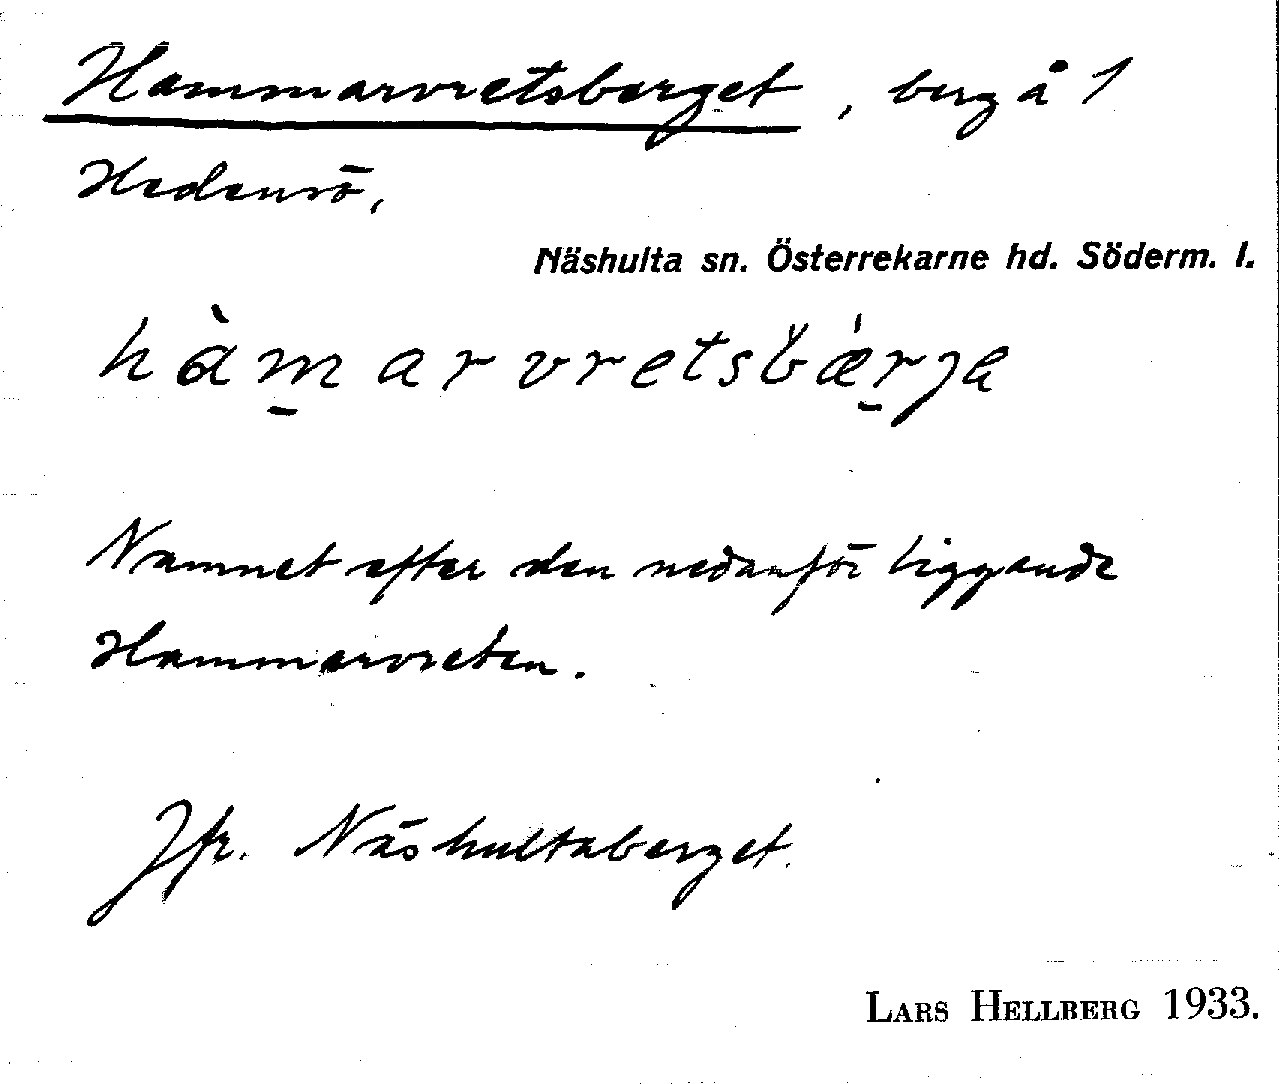 Hammarvretsberget, berg å 1
Hedensö,
Näshulta sn. Österrekarne hd. Söderm. l.
hàmarvretsbærja
Namnet efter den nedanför liggande
Hammarvreten.
Jfr. Näshultaberget.
LARS HELLBERG 1933.